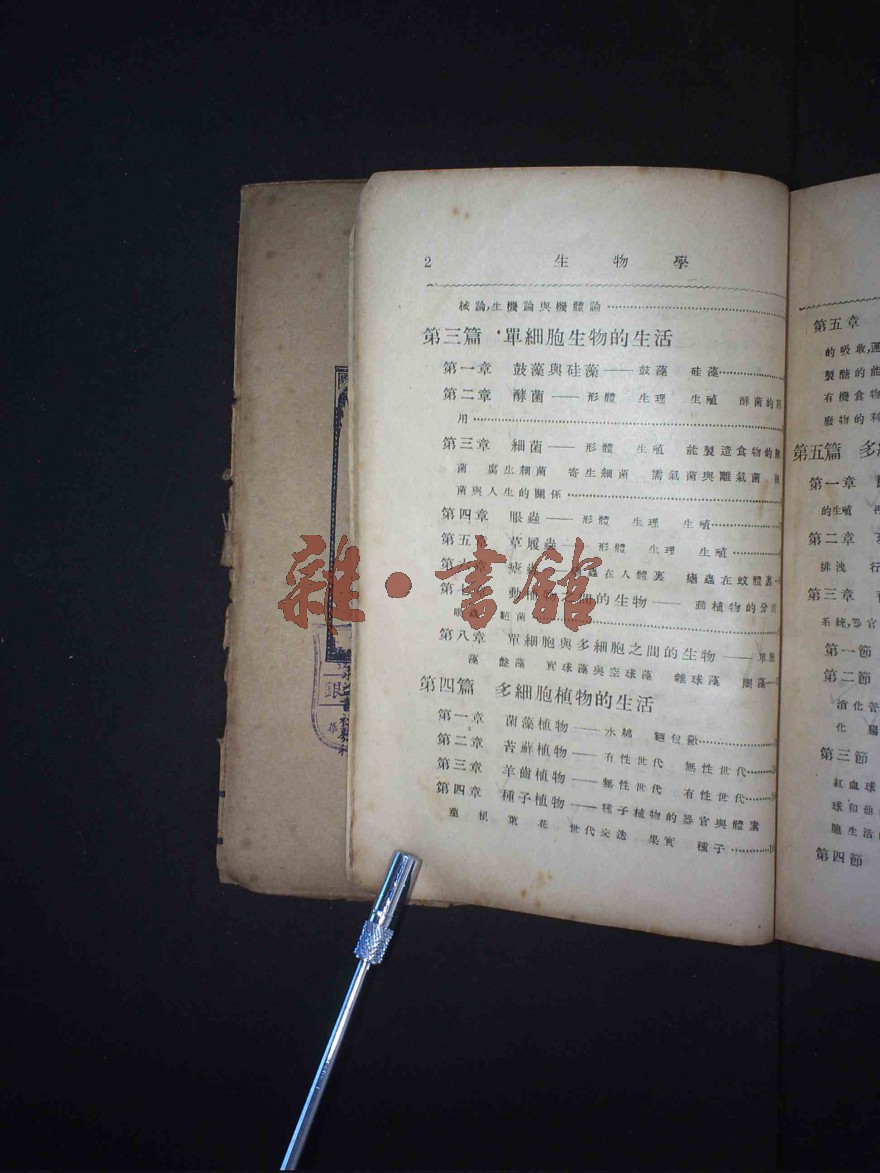 2 生物學
械論,生機論與機體論
第三篇 單細胞生物的生活
第一章 鼓藻與硅藻——鼓藻 硅藻
第二章 酵菌——形體 生理 生殖 酵菌的利
用
第三章 細菌——形體 生殖 能製造食物的細
菌 腐生細菌 寄生細菌 需氣菌與離氣菌 細
菌與人生的關係
第四章 眼蟲——形體 生理 生殖
第五章 草履蟲——形體 生理 生殖
蟲在人體裏 瘧蟲在蚊體裏
動植物之間的生物——動植物的分
菌
第八章 單細胞與多細胞之間的生物——單
藻 盤藻 實球藻與空球藻 雜球藻 團藻
第四篇 多細胞植物的生活
第一章 菌藻植物——水綿 麵包黴
第二章 苔蘚植物——有性世代 無性世代
第三章 羊齒植物——無性世代 有性世代
第四章 種子植物——種子植物的器官與體素
莖 根 葉 花 世代交迭 果實 種子
第五章
的吸收,運
製醣的能
有機食物
廢物的利
第五篇 多
第一章
的生殖
第二章
排洩 行
第三章
系統,器官
第一節
第二節
消化管
化 腸
第三節
紅血球
球和
胞生活
第四節
雜·書館
銀